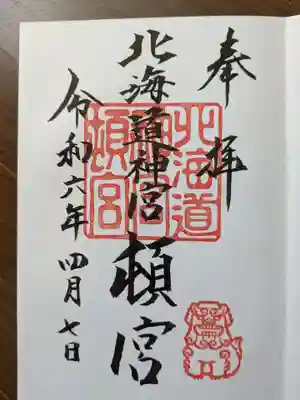 奉拝
北海道神宮頓宮
令和六年四月七日
北海道
神宮
頓宮